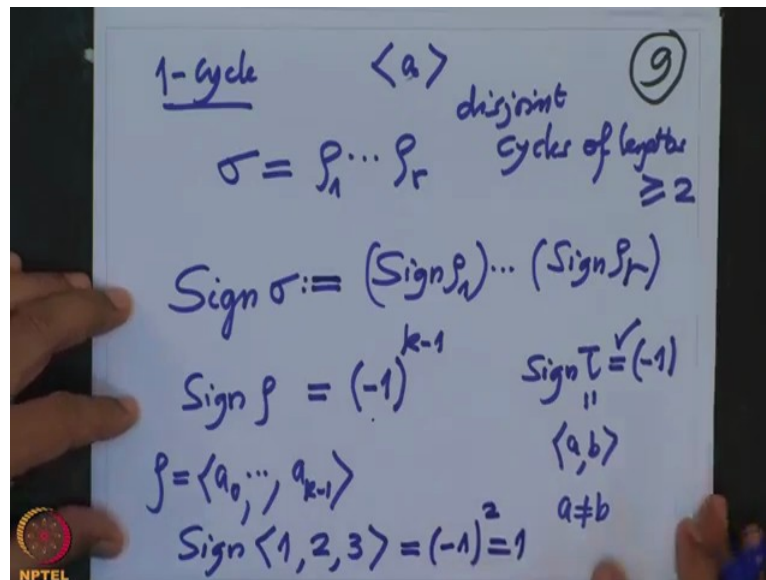 1-cycle <a> 9
disjoint
σ = ρ₁ ⋯ ρᵣ cycles of lengths
≥ 2
Sign σ := (Sign ρ₁) ⋯ (Sign ρᵣ)
Sign ρ = (-1)^{k-1} Sign τ =✓ (-1)
||
<a, b>
ρ = <a₀, ⋯, a_{k-1}> a ≠ b
Sign <1, 2, 3> = (-1)² = 1
NPTEL